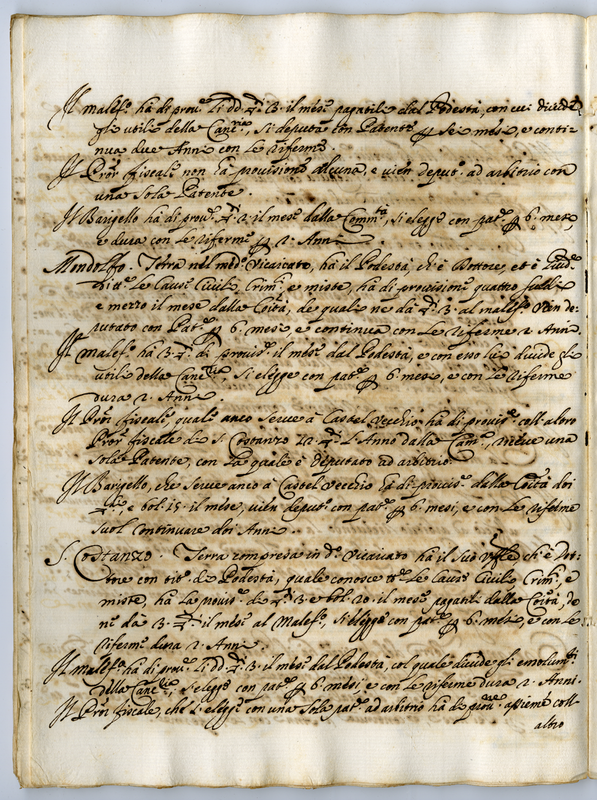 Il malef.º hà di prou.e li dd. 3. il mese pagatili dal Podestà, con cui diuide
gl'utili della Canc.ria, si deputa con Patente p sei mesi, e conti-
nua due Anni con le Riferme.
Il Pror fiscale non hà prouisione alcuna, e uien deput.º ad arbitrio con
una sola Patente.
Il Barigello hà di prou.e 2. il mese dalla Comm.tà, si elegge con pat.e p 6. mesi,
e dura con le riferme p 2. Anni
Mondolfo. Terra nel med.º Vicariato, hà il Podestà, ch'è Dottore, et è Giud.e
di tt.e le Cause Ciuili, Crim.i e miste, hà di prouisione quattro
e mezzo il mese dalla Co.ità, de quali ne dà 3. al malef.º Vien de-
putato con Pat.e p 6. mesi e continua con le riferme 2. Anni.
Il malef.º hà 3. di prouis.e il mese dal Podestà, e con esso lui diuide gl'
utili della Canc.ria, si elegge con pat.e p 6. mesi, e con le riferme
dura 2. Anni
Il Pror fiscale, quale anco serue à Castel Vecchio, hà di prouis.e coll'altro
Pror fiscale di S. Costanzo 12. l'Anno dalla Cam.a, riceue una
sola Patente, con la quale è deputato ad arbitrio.
Il Barigello, che serue anco à Castel Vecchio hà di prouis.e dalla Co.ità doi
e bol. 15. il mese, uien deput.º con pat.e p 6. mesi, e con le riferme
suol continuare doi Anni.
S. Costanzo. Terra compresa in d.º Vicariato hà il suo ch'è Dot-
tore con tit.º di Podestà, quale conosce tt.e le Cause Ciuili Crim.i, e
miste, hà la prouis.e di 3. e bol. 20. il mese pagatili dalla Co.ità, de
n.i dà 3. il mese al Malef.º, si elegge con pat.e p 6. mesi, e con le
riferme dura 2. Anni.
Il malef.º hà di prou.e li dd. 3. il mese dal Podestà, col quale diuide gl'emolum.ti
della Canc.ria, si elegge con pat.e p 6. mesi, e con le riferme dura 2. Anni.
Il Pror fiscale, che si elegge con una sola pat.e ad arbitrio hà di prou.ne assieme coll'
altro